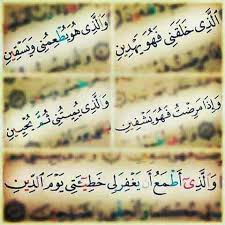 الَّذِى خَلَقَنِى فَهُوَ يَهْدِينِ
وَالَّذِى هُوَ يُطْعِمُنِى وَيَسْقِينِ
وَإِذَا مَرِضْتُ فَهُوَ يَشْفِينِ
وَالَّذِى يُمِيتُنِى ثُمَّ يُحْيِينِ
وَالَّذِىٓ أَطْمَعُ أَن يَغْفِرَ لِى خَطِيٓـَٔتِى يَوْمَ الدِّينِ